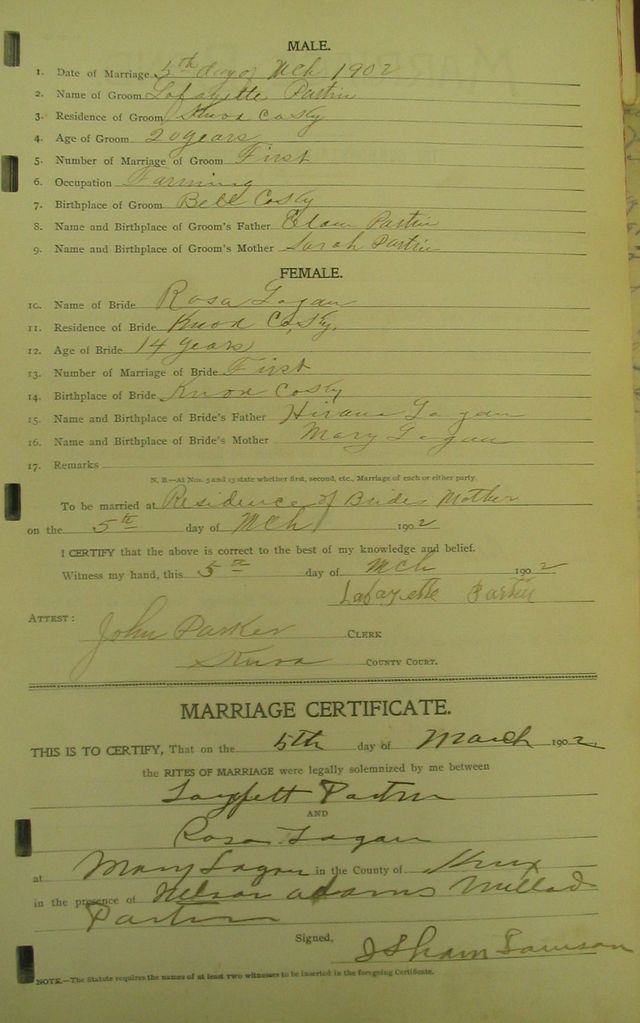 MALE.
1. Date of Marriage 5th day of Mch 1902
2. Name of Groom Lafayette Partin
3. Residence of Groom Knox Co Ky
4. Age of Groom 20 years
5. Number of Marriage of Groom First
6. Occupation Farming
7. Birthplace of Groom Bell Co Ky
8. Name and Birthplace of Groom's Father Elam Partin
9. Name and Birthplace of Groom's Mother Sarah Partin
FEMALE.
10. Name of Bride Rosa Logan
11. Residence of Bride Knox Co, Ky,
12. Age of Bride 14 years
13. Number of Marriage of Bride First
14. Birthplace of Bride Knox Co Ky
15. Name and Birthplace of Bride's Father Hiram Logan
16. Name and Birthplace of Bride's Mother Mary Logan
17. Remarks
N. B.—At Nos. 5 and 13 state whether first, second, etc., Marriage of each or either party.
To be married at Residence of Brides Mother
on the 5th day of Mch 1902
I CERTIFY that the above is correct to the best of my knowledge and belief.
Witness my hand, this 5th day of Mch 1902
Lafayette Partin
ATTEST:
John Parker CLERK
Knox COUNTY COURT.
MARRIAGE CERTIFICATE.
THIS IS TO CERTIFY, That on the 5th day of March 1902,
the RITES OF MARRIAGE were legally solemnized by me between
Partin
AND
Rosa Logan
at Mary Logan in the County of Knox
in the presence of Nelson adams Millad
Partin
Signed, Isham Lawson
NOTE.—The Statute requires the names of at least two witnesses to be inserted in the foregoing Certificate.